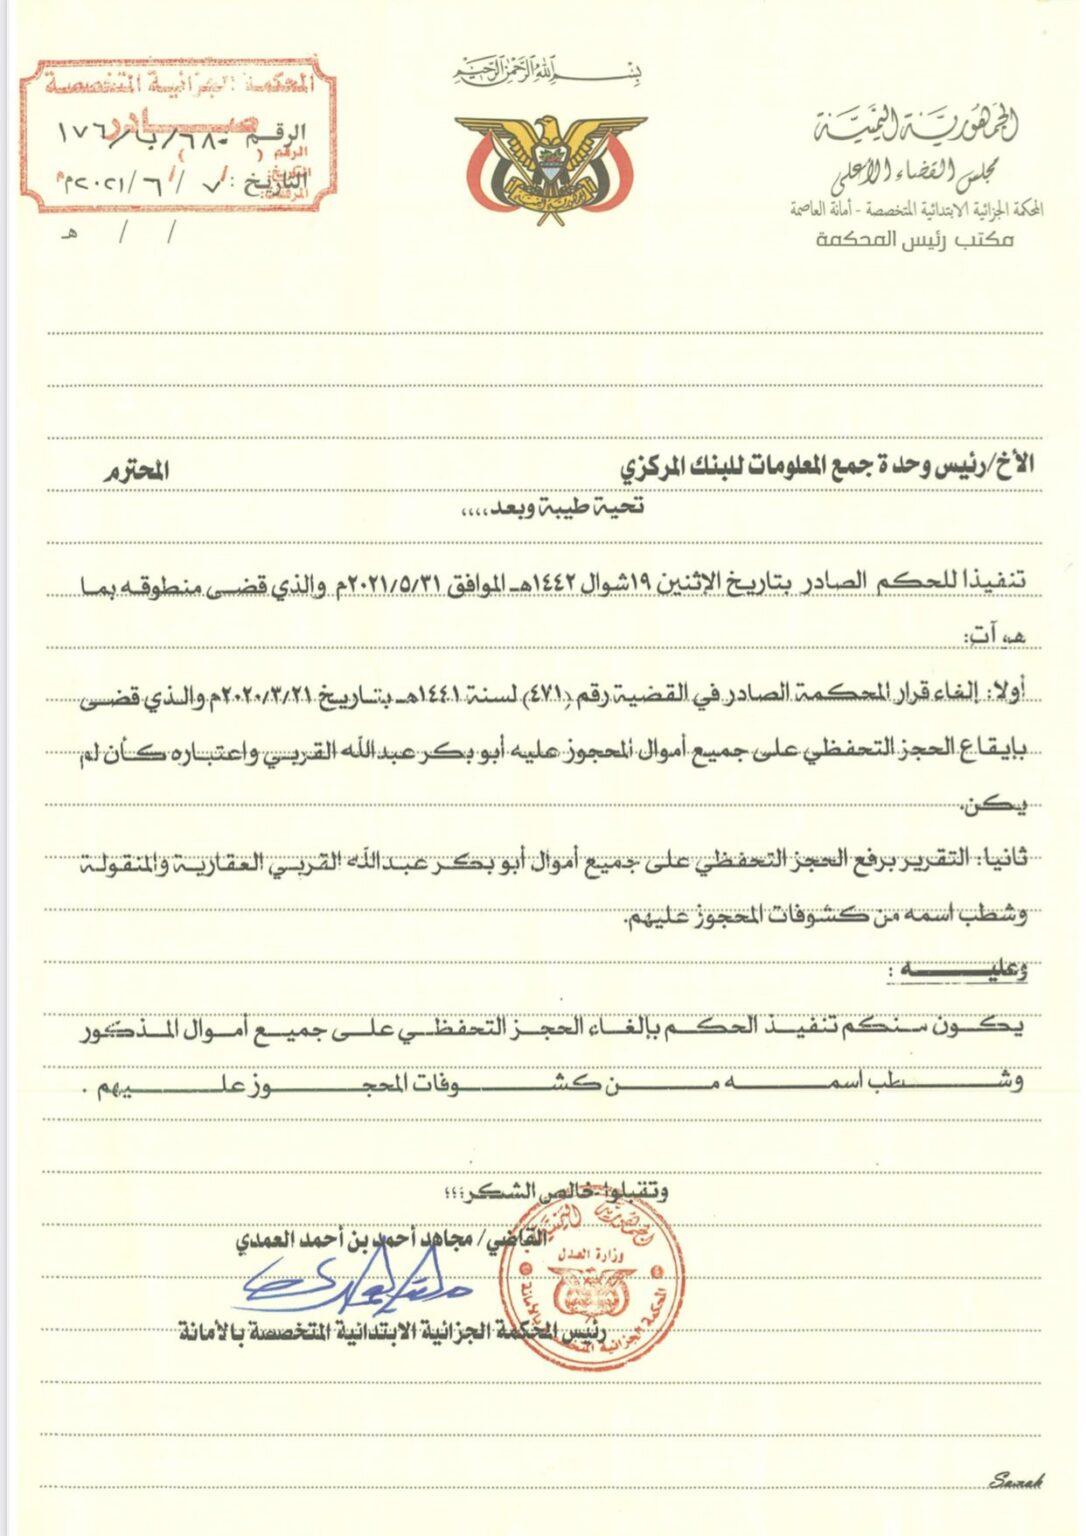 بسم الله الرحمن الرحيم
الجمهورية اليمنية
مجلس القضاء الأعلى
المحكمة الجزائية الابتدائية المتخصصة - أمانة العاصمة
مكتب رئيس المحكمة
المحكمة الجزائية المتخصصة
صادر
الرقم ٦٨٠/ب/١٧٦
الرقم ( )
التاريخ: ٧/٦/٢٠٢١م
/ / هـ
الأخ/رئيس وحدة جمع المعلومات للبنك المركزي المحترم
تحية طيبة وبعد،،،،
تنفيذا للحكم الصادر بتاريخ الإثنين ١٩شوال ١٤٤٢هـ الموافق ٢٠٢١/٥/٣١م والذي قضى منطوقه بما
هـ، آت:
أولا: إلغاء قرار المحكمة الصادر في القضية رقم (٤٧١) لسنة ١٤٤١هـ بتاريخ ٢٠٢٠/٣/٢١م والذي قضى
بإيقاع الحجز التحفظي على جميع أموال المحجوز عليه أبو بكر عبدالله القربي واعتباره كأن لم
يكن.
ثانيا: التقرير برفع الحجز التحفظي على جميع أموال أبو بكر عبدالله القربي العقارية والمنقولة
وشطب اسمه من كشوفات المحجوز عليهم.
وعليـــــــه :
يكون منكم تنفيذ الحكم بإلغاء الحجز التحفظي على جميع أموال المذكور
وشـــطب اسمـــه مـــن كشـــوفات المحجـــوز علـــيهم .
وتقبلوا خالص الشكر؛؛؛
القاضي/ مجاهد أحمد بن أحمد العمدي
رئيس المحكمة الجزائية الابتدائية المتخصصة بالأمانة
الجمهورية اليمنية
وزارة العدل
المحكمة الجزائية المتخصصة بالأمانة
Samah